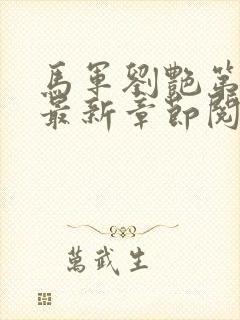 馬軍劉艷第
最新章節閱
萬武生